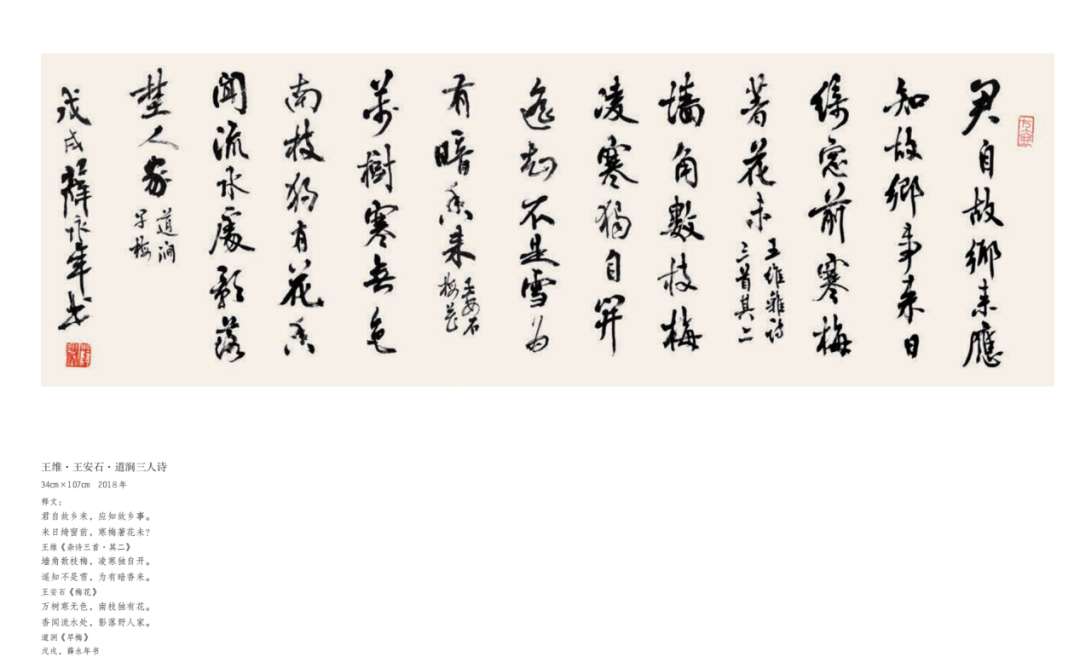 君自故鄉来應
知故鄉事来日
綺窓前寒梅
著花未
王维雜诗
三首其二
墙角數枝梅
凌寒獨自開
遥知不是雪为
有暗香来
王安石
梅花
萬樹寒无色
南枝獨有花香
聞流水處影落
埜人家
道涧
早梅
戊戌薛永年书
王维・王安石・道涧三人诗
34cm×107cm 2018年
释文：
君自故乡来，应知故乡事。
来日绮窗前，寒梅著花未？
王维《杂诗三首・其二》
墙角数枝梅，凌寒独自开。
遥知不是雪，为有暗香来。
王安石《梅花》
万树寒无色，南枝独有花。
香闻流水处，影落野人家。
道涧《早梅》
戊戌，薛永年书